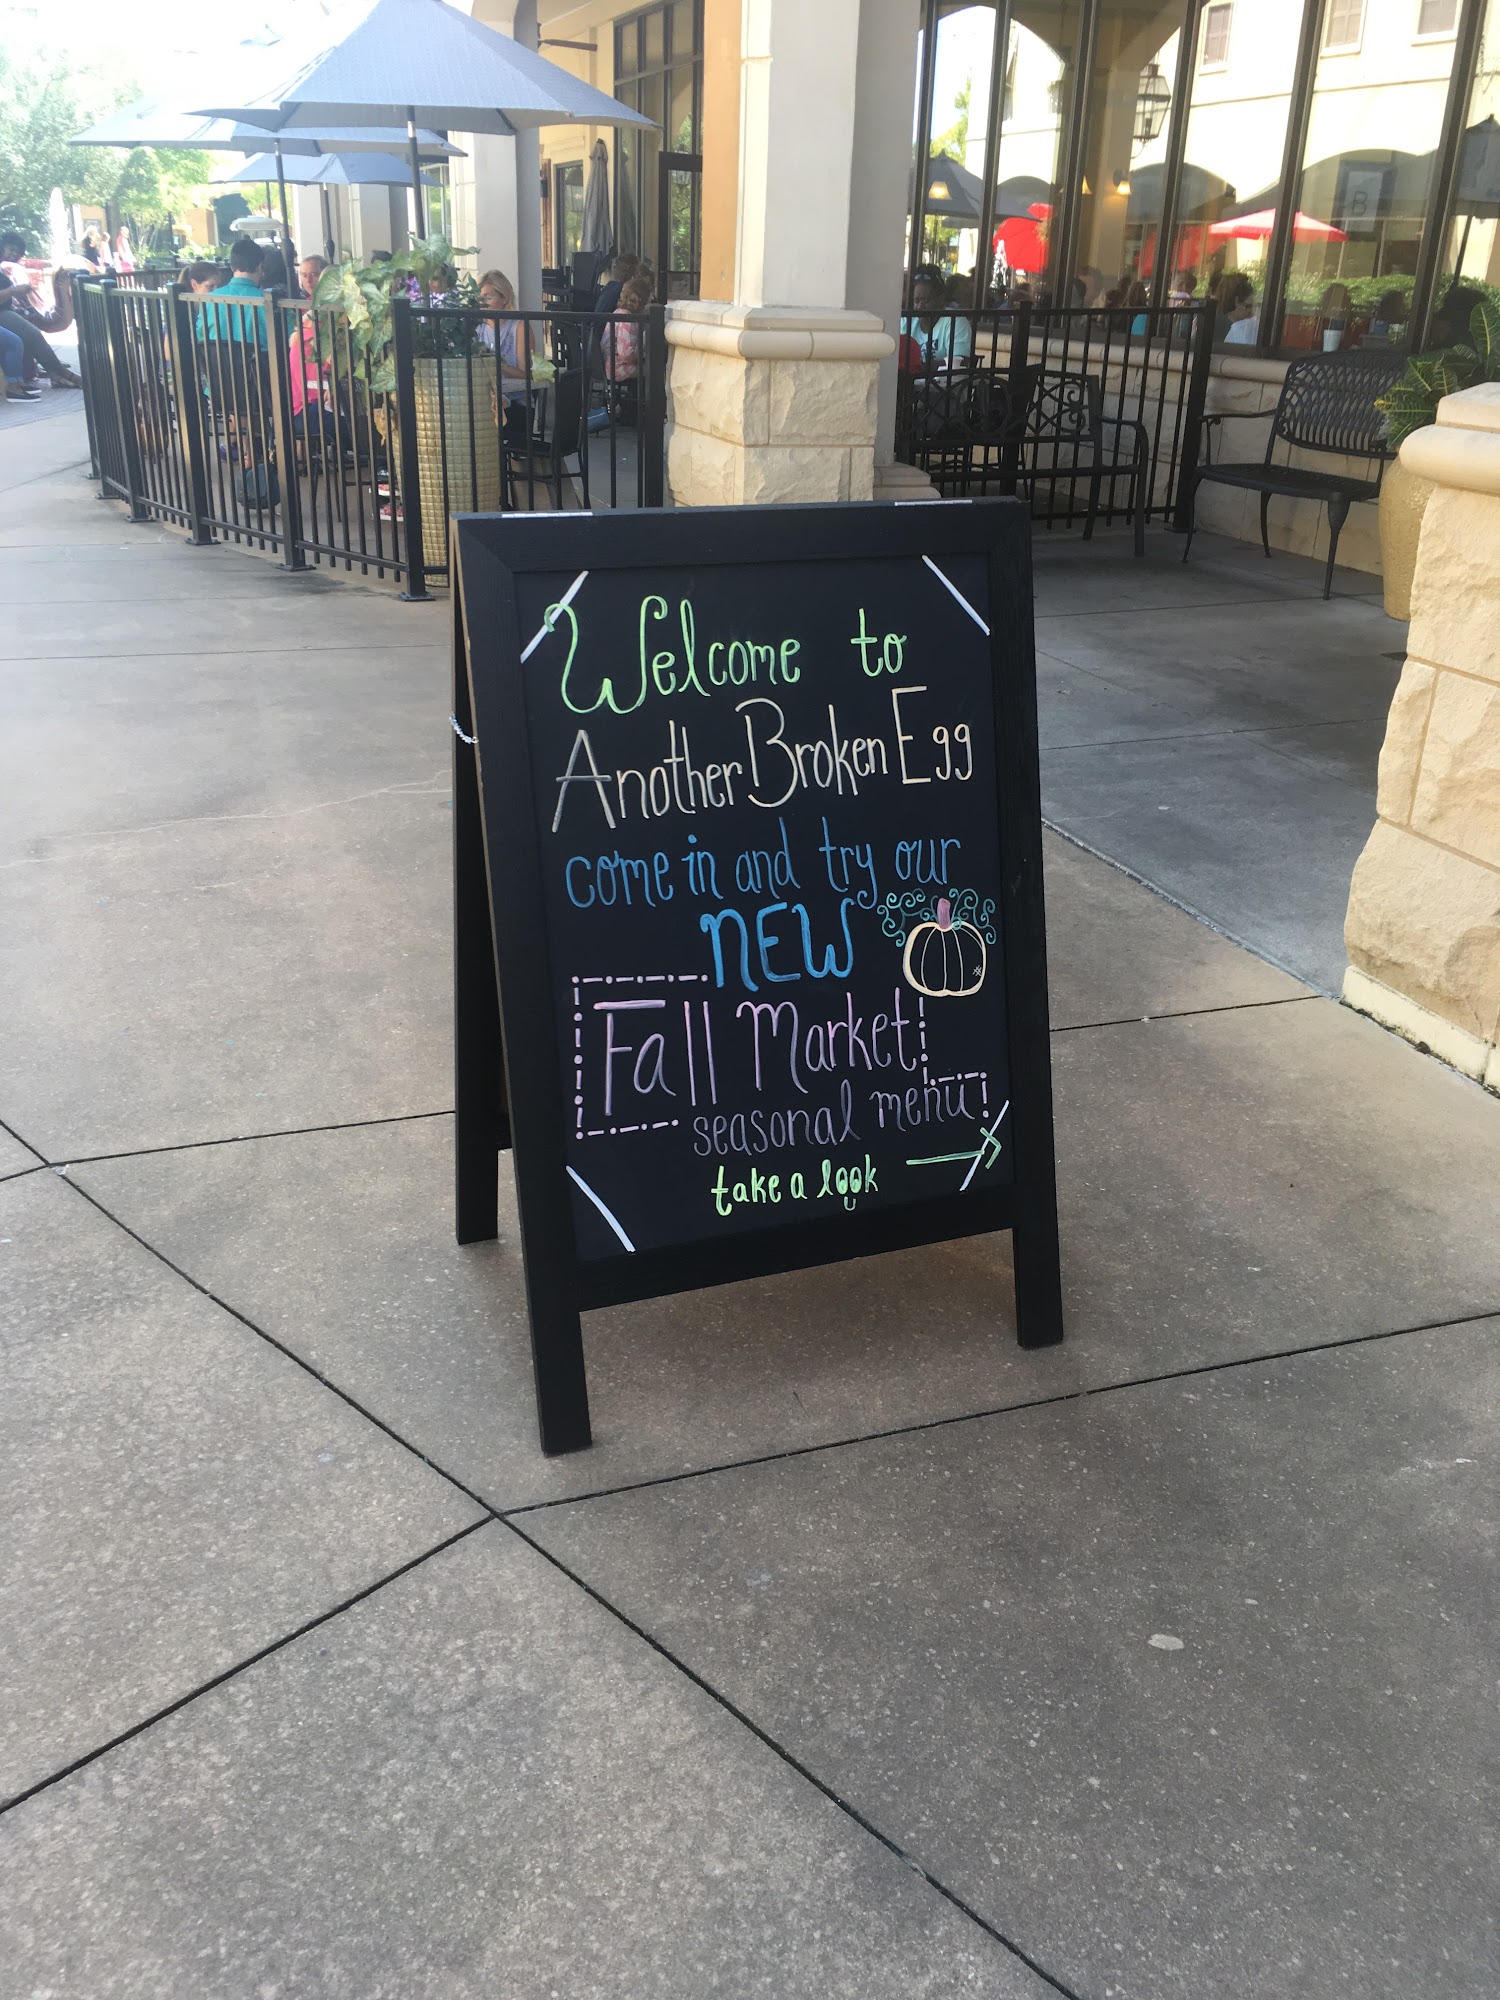 Welcome to
Another Broken Egg
come in and try our
NEW
Fall Market
seasonal menu!
take a look